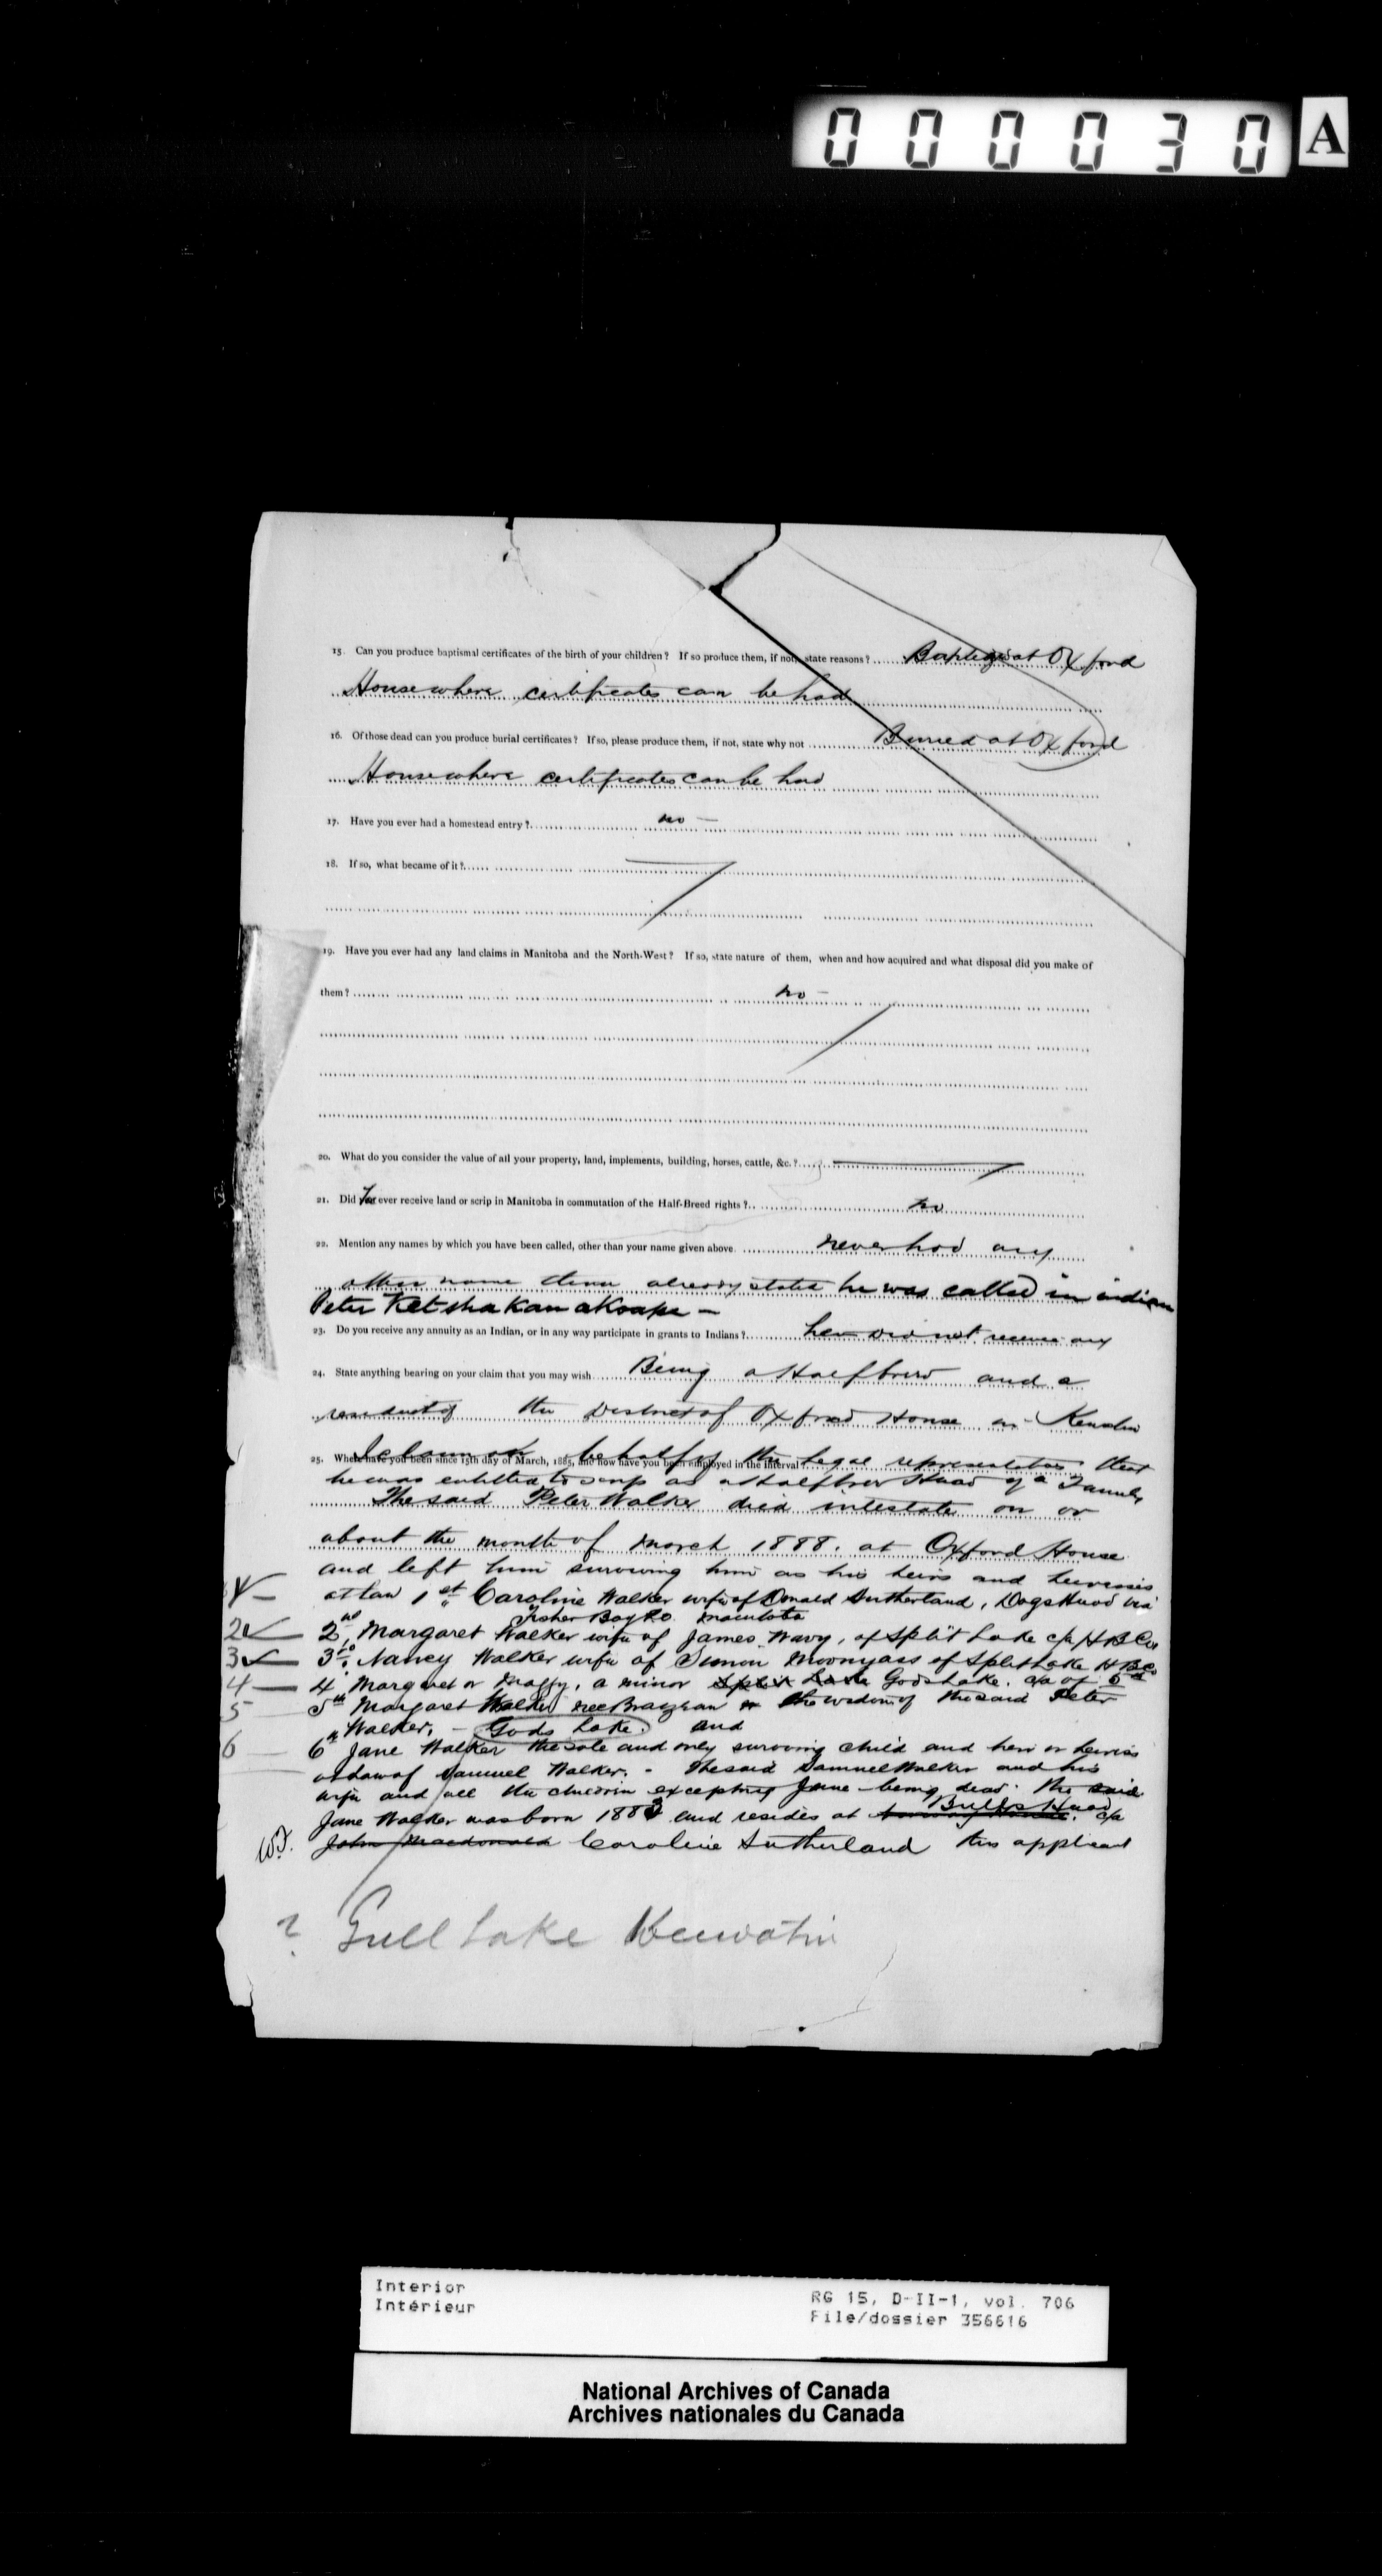 000030 A
15. Can you produce baptismal certificates of the birth of your children? If so produce them, if not, state reasons? Baptized at Oxford
House where certificates can be had
16. Of those dead can you produce burial certificates? If so, please produce them, if not, state why not Buried at Oxford
House where certificates can be had
17. Have you ever had a homestead entry? no –
18. If so, what became of it?
19. Have you ever had any land claims in Manitoba and the North-West? If so, state nature of them, when and how acquired and what disposal did you make of
them? no –
20. What do you consider the value of all your property, land, implements, building, horses, cattle, &c.?
21. Did ever receive land or scrip in Manitoba in commutation of the Half-Breed rights? no
22. Mention any names by which you have been called, other than your name given above never had any
other name than already stated he was called in indian
Peter
23. Do you receive any annuity as an Indian, or in any way participate in grants to Indians? did not receive any
24. State anything bearing on your claim that you may wish Being a Halfbreed and a
resident of the District of Oxford House in
I claim on behalf of the legal representatives that
25. Where have you been since 15th day of March, 1885, and how have you been employed in the interval?
he was entitled to scrip as a halfbreed Head of a Family
The said Peter Walker died intestate on or
about the month of March 1888. at Oxford House
and left him surviving him as his heirs and heiresses
at law 1st Caroline Walker wife of Donald Sutherland, Dogs Head via
Fisher Bay P.O. Manitoba
2nd Margaret Walker wife of James Wavy, of Split Lake c/o H B Co
3rd. Nancy Walker wife of Simon Moonyass of Split Lake H.B.Co
4 Margaret or Maggy, a minor Split Lake Gods Lake. c/o of 5th
5th Margaret Walker nee the widow of the said Peter
Walker, – Gods Lake. and
6th Jane Walker the sole and only surviving child and heir or heiress
at law of Samuel Walker. – The said Samuel Walker and his
wife and all the children excepting Jane being dead. The said
Jane Walker was born 1883 and resides at c/o
John Macdonald Caroline Sutherland this applicant
4 –
2
3
4 –
5
6
? Gull Lake Keewatin
Interior
Intérieur
RG 15, D-II-1, vol. 706
File/dossier 356616
National Archives of Canada
Archives nationales du Canada